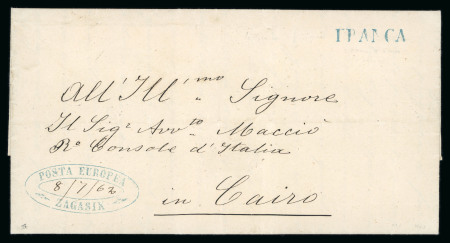 FRANCA
All' Ill.mo Signore
Il Sigr Avvto Macciò
Ro Console d'Italia
in Cairo
POSTA EUROPEA
8/7/62
ZAGASIK